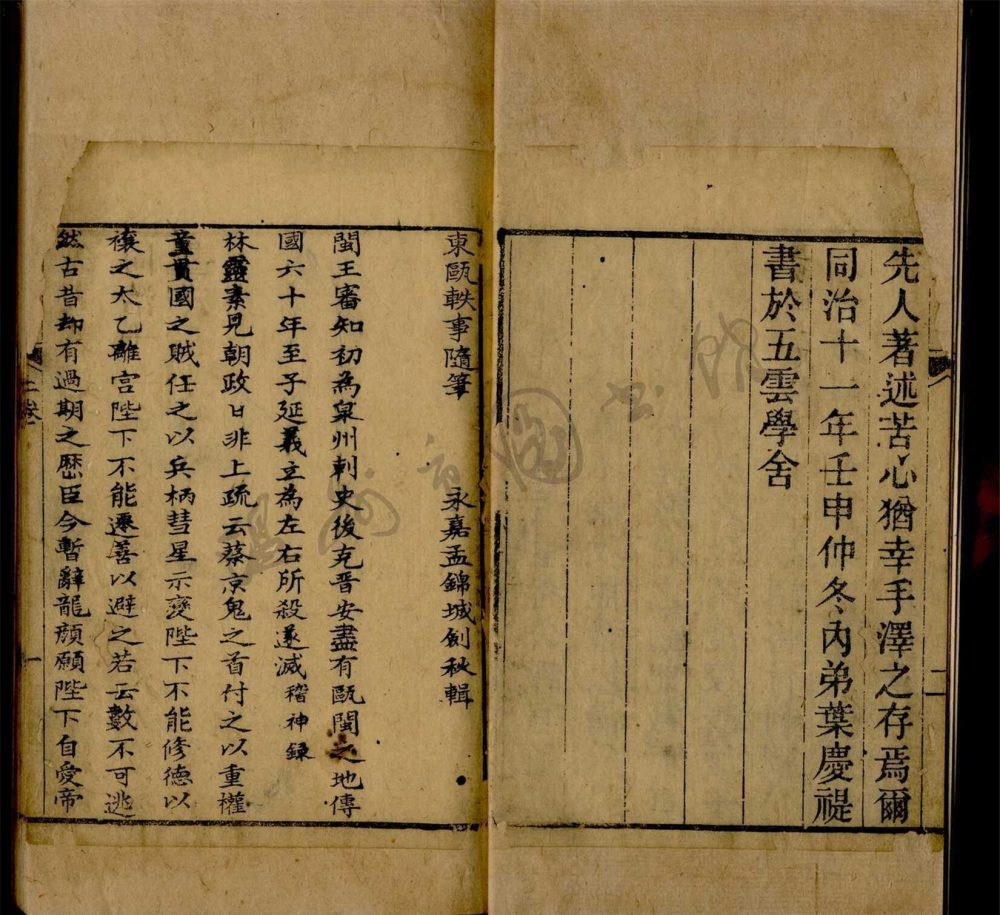 先人著述苦心猶幸手澤之存焉爾
同治十一年壬申仲冬內弟葉慶禔
書於五雲學舍
二
東甌軼事隨筆 永嘉孟錦城劍秋輯
閩王審知初為泉州刺史後克晋安盡有甌閩之地傳
國六十年至子延羲立為左右所殺遂滅稽神錄
林靈素見朝政日非上疏云蔡京鬼之首付之以重權
童貫國之賊任之以兵柄彗星示變陛下不能修德以
禳之太乙離宮陛下不能遷善以避之若云數不可逃
然古昔却有過期之歷臣今暫辭龍顔願陛下自愛帝
一